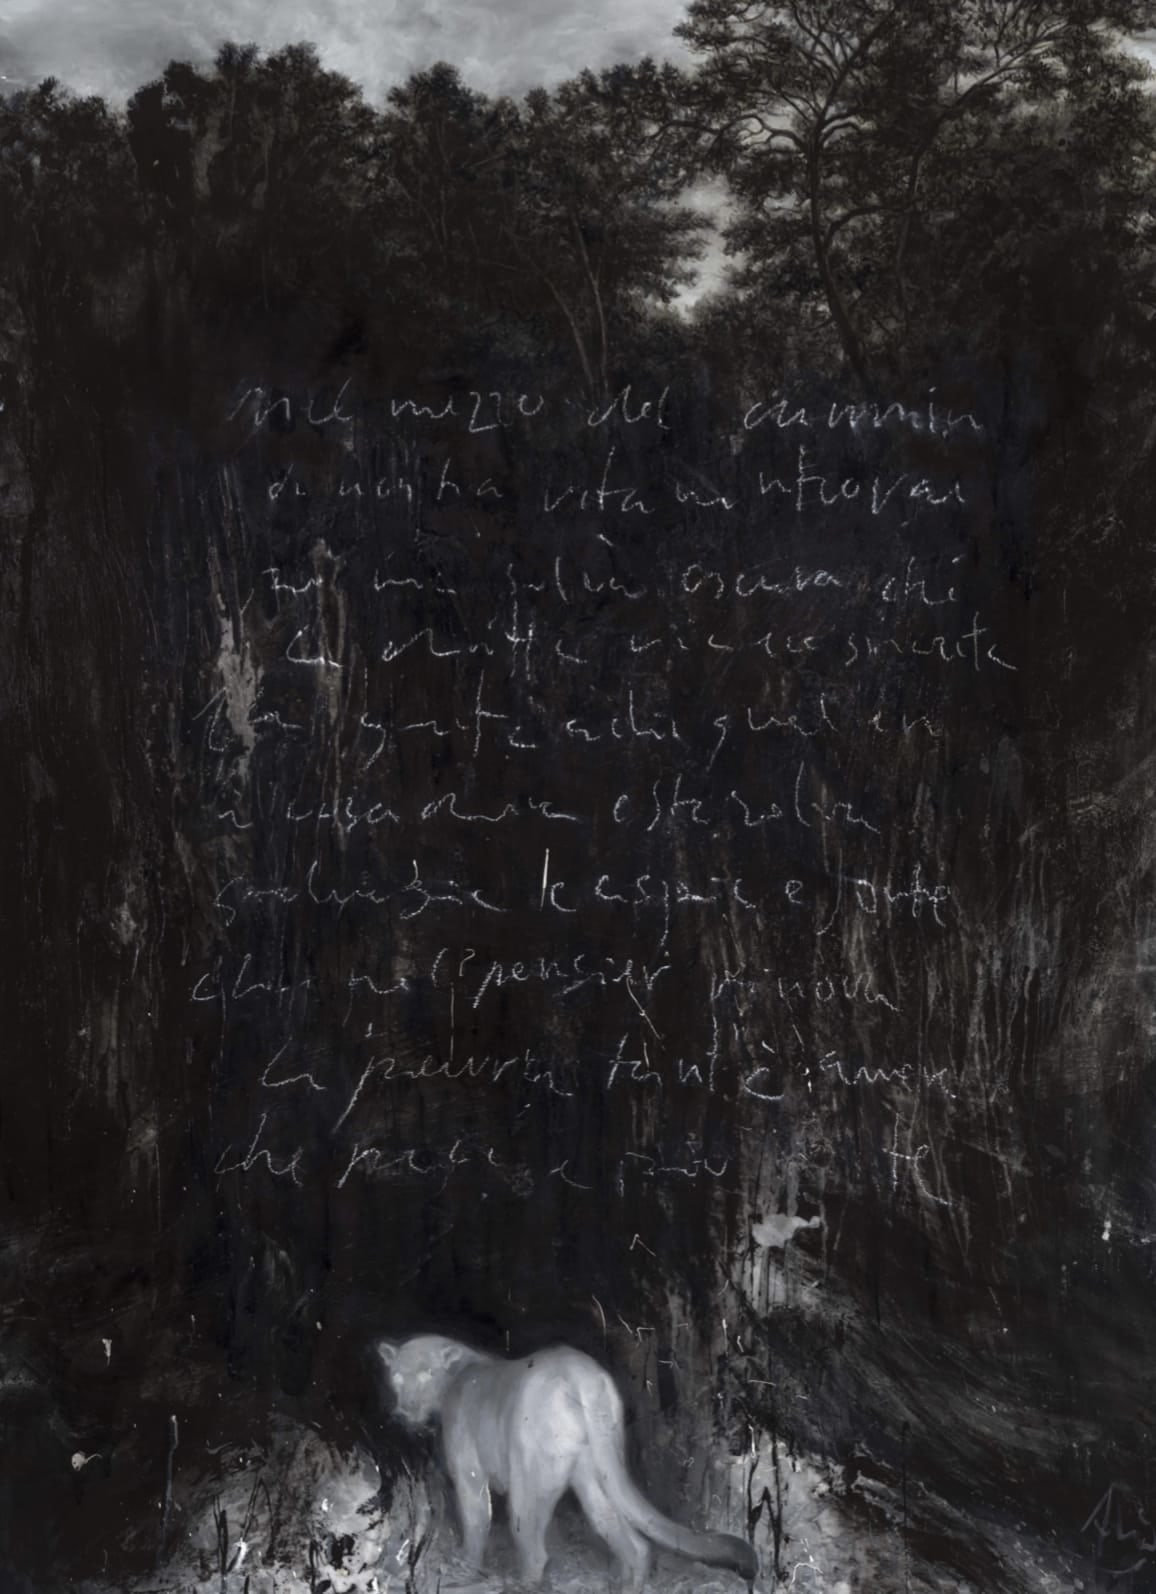 Nel mezzo del cammin
di nostra vita mi ritrovai
per una selva oscura ché
la diritta via era smarrita
Ahi quanto a dir qual era
è cosa dura esta selva
selvaggia e aspra e forte
che nel pensier rinova
la paura tant'è amara
che poco è più te